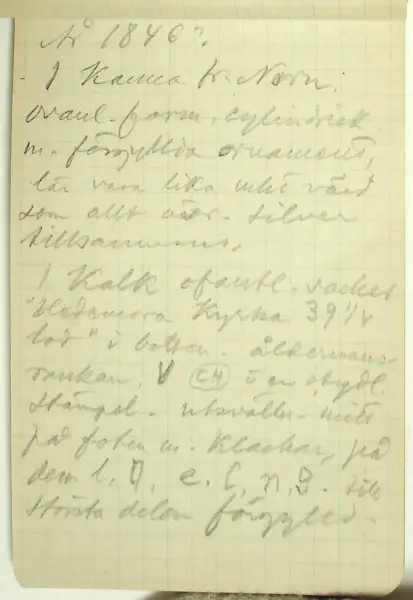 År 1846?.
1 Kanna fr. Norn.
ovanl. form, cylindrisk
m. förgyllda ornament,
lär vara lika mkt värd
som allt öfr. silver
tillsammans.
1 Kalk ofantl. vacker
"Hedemora Kyrka 39 1/4
lod" i botten. åldermans-
rankan. V CH o en otydl.
stämpel. utsvälln. mitt
på foten m. klackar, på
dem l. D, e. C, n, B. till
största delen förgylld.